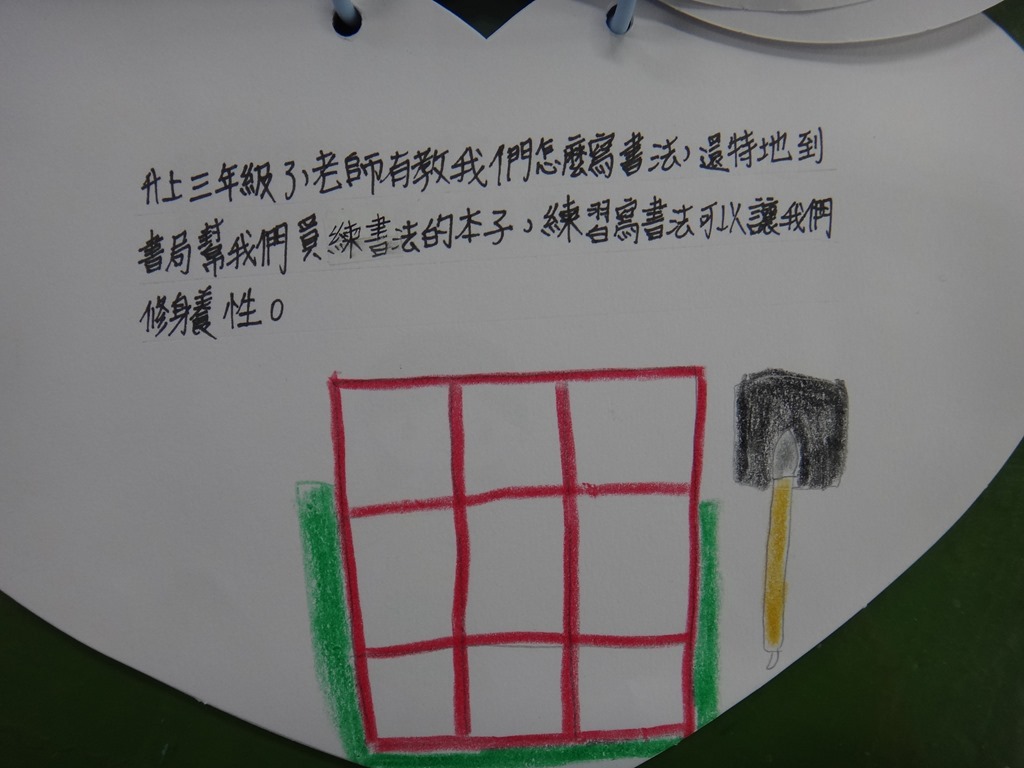 升上三年級了,老師有教我們怎麼寫書法,還特地到
書局幫我們買練書法的本子,練習寫書法可以讓我們
修身養性。